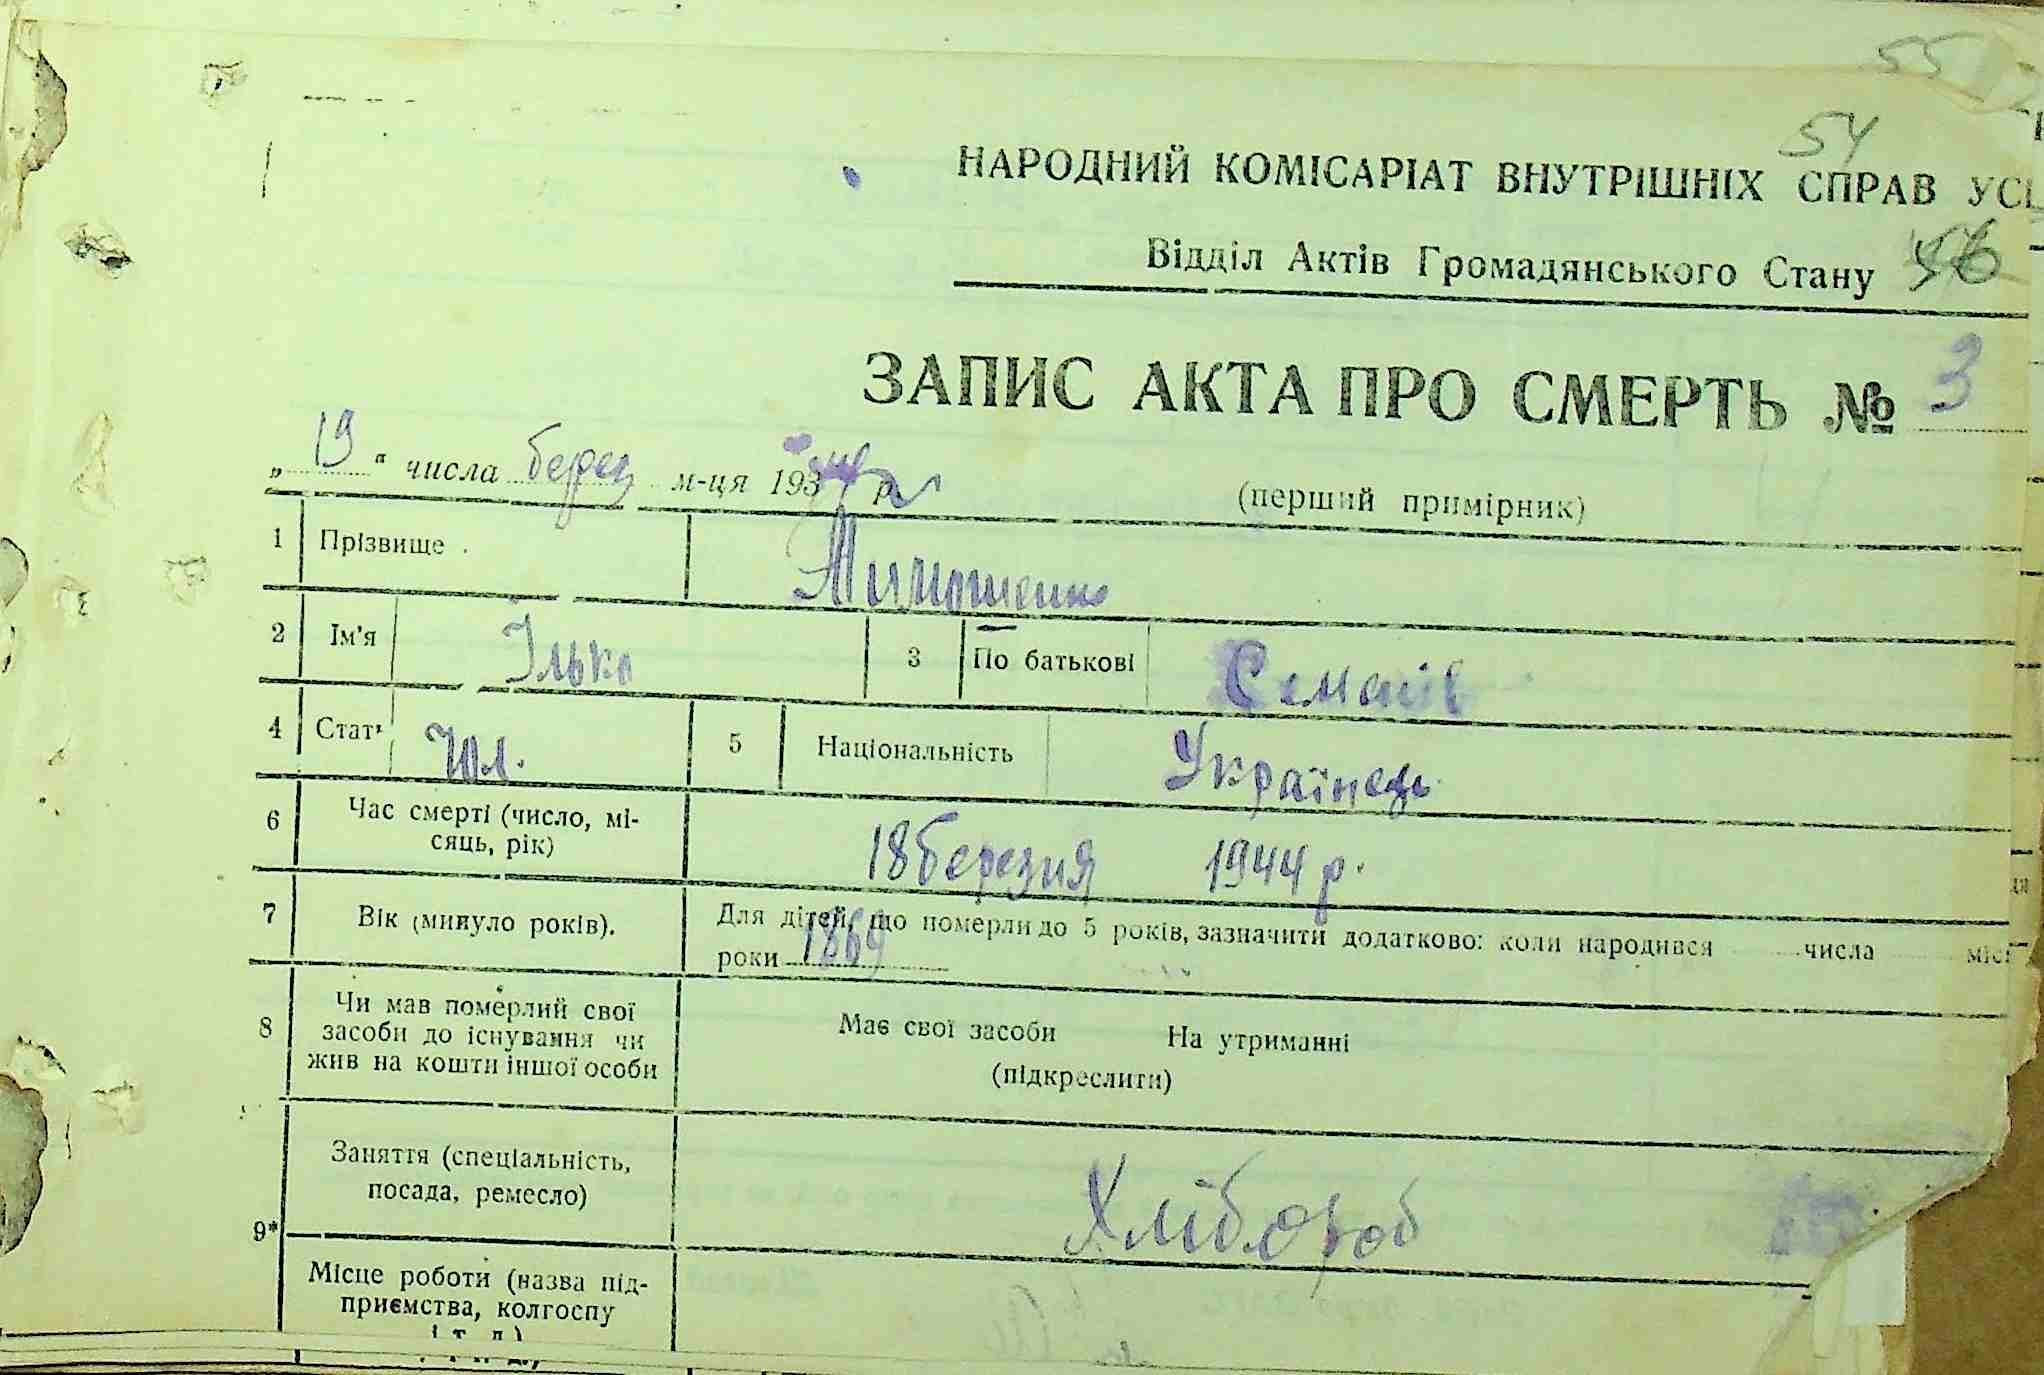 55
54
НАРОДНИЙ КОМІСАРІАТ ВНУТРІШНІХ СПРАВ УС
Відділ Актів Громадянського Стану 56
ЗАПИС АКТА ПРО СМЕРТЬ № 3
„ 19 “ числа берез м-ця 193 р.
(перший примірник)
1 Прізвище . Тимошенко
2 Ім'я Ілько 3 По батькові Семенів
4 Стать Чол. 5 Національність Українець
6 Час смерті (число, мі-
сяць, рік) 18 березня 1944 р.
7 Вік (минуло років). Для дітей, що померли до 5 років, зазначити додатково: коли народився числа міс
роки 1869
8 Чи мав померлий свої
засоби до існування чи
жив на кошти іншої особи
Має свої засоби На утриманні
(підкреслити)
9*
Заняття (спеціальність,
посада, ремесло) Хлібороб
Місце роботи (назва під-
приємства, колгоспу
і т. д.)